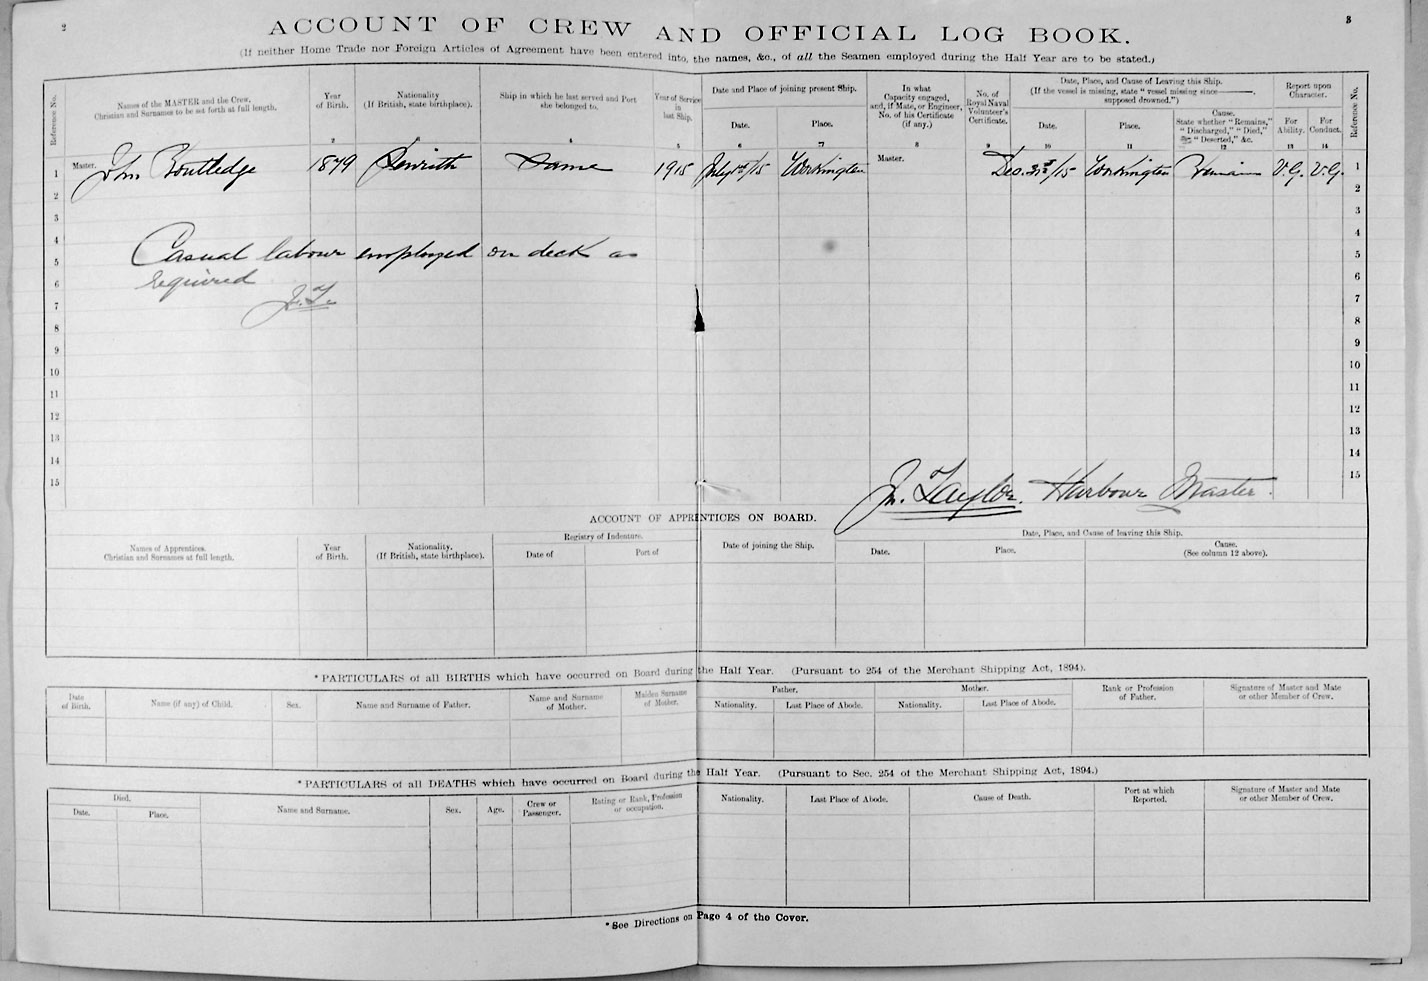 2
3
ACCOUNT OF CREW AND OFFICIAL LOG BOOK.
(If neither Home Trade nor Foreign Articles of Agreement have been entered into, the names, &c., of all the Seamen employed during the Half Year are to be stated.)
Reference No.
Names of the MASTER and the Crew.
Christian and Surnames to be set forth at full length.
Year
of Birth.
2
Nationality
(If British, state birthplace).
3
Ship in which he last served and Port
she belonged to.
4
Year of Service
in
last Ship.
5
Date and Place of joining present Ship.
Date.
6
Place.
7
In what
Capacity engaged,
and, if Mate, or Engineer,
No. of his Certificate
(if any.)
8
No. of
Royal Naval
Volunteer's
Certificate.
9
Date, Place, and Cause of Leaving this Ship.
(If the vessel is missing, state "vessel missing since ———,
supposed drowned.")
Date.
10
Place.
11
Cause.
State whether "Remains,"
"Discharged," "Died,"
"Deserted," &c.
12
Report upon
Character.
For
Ability.
13
For
Conduct.
14
Reference No.
1 Master. Jn. Routledge 1879 Penrith Same 1915 July 1st/15 Workington Master. Dec. 31st/15 Workington Remains V.G. V.G. 1
2 2
3 3
4 4
Casual labour employed on deck as
5 5
required
6 6
J.T.
7 7
8 8
9 9
10 10
11 11
12 12
13 13
14 14
15 15
Jn. Taylor. Harbour Master.
ACCOUNT OF APPRENTICES ON BOARD.
Names of Apprentices.
Christian and Surnames at full length.
Year
of Birth.
Nationality.
(If British, state birthplace).
Registry of Indenture.
Date of
Port of
Date of joining the Ship.
Date, Place, and Cause of leaving this Ship.
Date.
Place.
Cause.
(See column 12 above).
*PARTICULARS of all BIRTHS which have occurred on Board during the Half Year. (Pursuant to 254 of the Merchant Shipping Act, 1894).
Date
of Birth.
Name (if any) of Child.
Sex.
Name and Surname of Father.
Name and Surname
of Mother.
Maiden Surname
of Mother.
Father.
Nationality.
Last Place of Abode.
Mother.
Nationality.
Last Place of Abode.
Rank or Profession
of Father.
Signature of Master and Mate
or other Member of Crew.
*PARTICULARS of all DEATHS which have occurred on Board during the Half Year. (Pursuant to Sec. 254 of the Merchant Shipping Act, 1894.)
Died.
Date.
Place.
Name and Surname.
Sex.
Age.
Crew or
Passenger.
Rating or Rank, Profession
or occupation.
Nationality.
Last Place of Abode.
Cause of Death.
Port at which
Reported.
Signature of Master and Mate
or other Member of Crew.
*See Directions on Page 4 of the Cover.